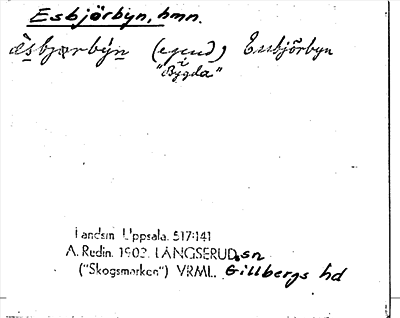 Esbjörbyn, hmn.
æ̀sbjœrbýn (egend) Essbjörbyn
i "Bygda"
Landsm. Uppsala. 517:141
A. Rudin. 1902. LÅNGSERUD. sn
("Skogsmarken") VRML. Gillbergs hd